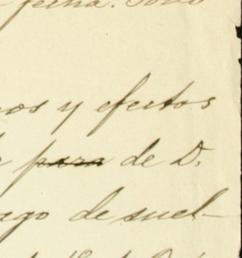 fecha. Todo
nos y efectos
para de D.
ago de suel-